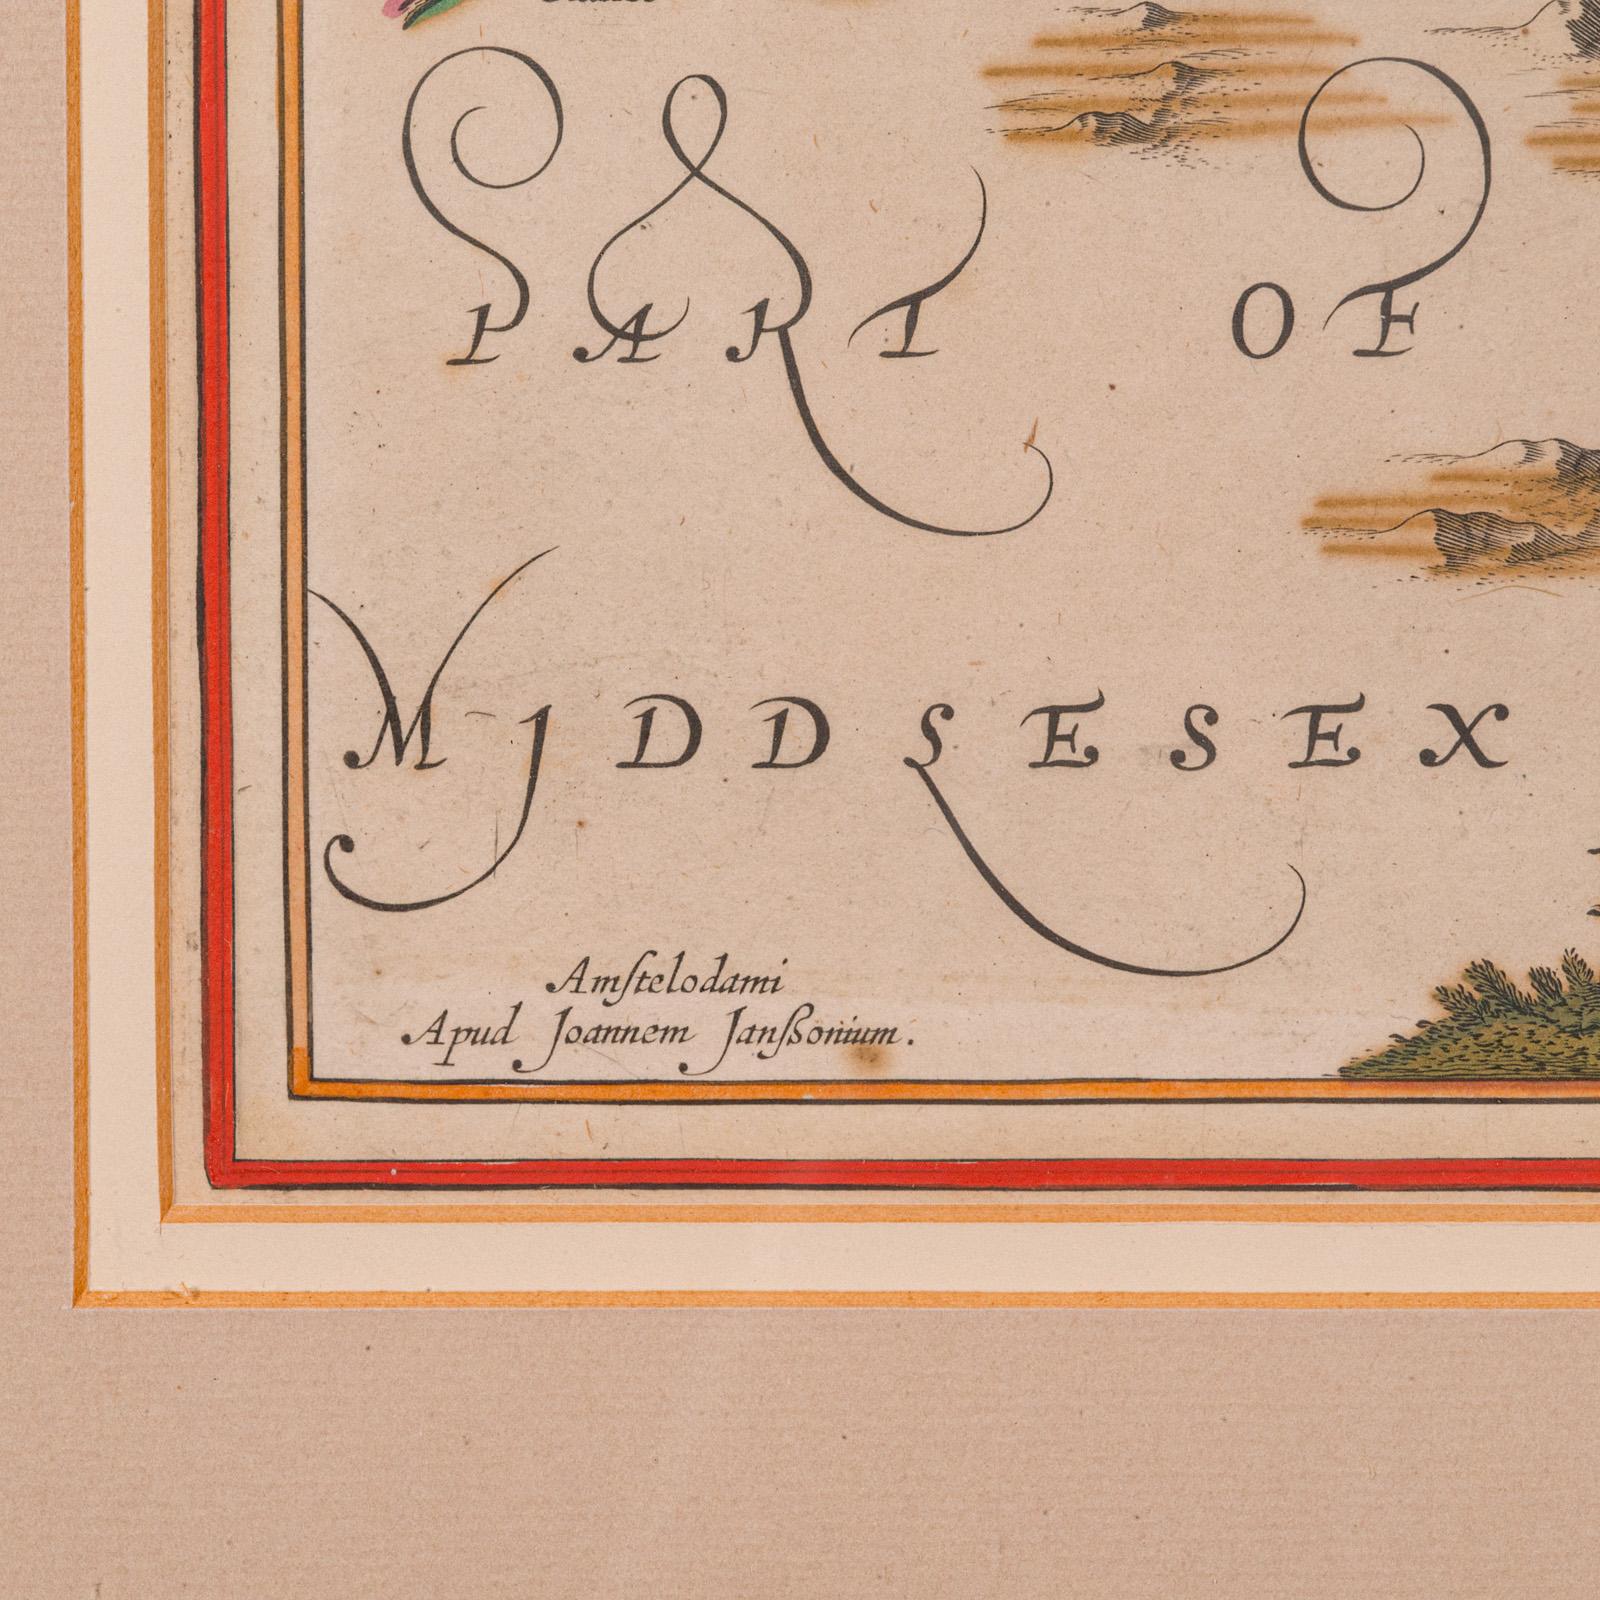 PART OF
MJDDSESEX
Amſtelodami
Apud Joannem Janſsonium.